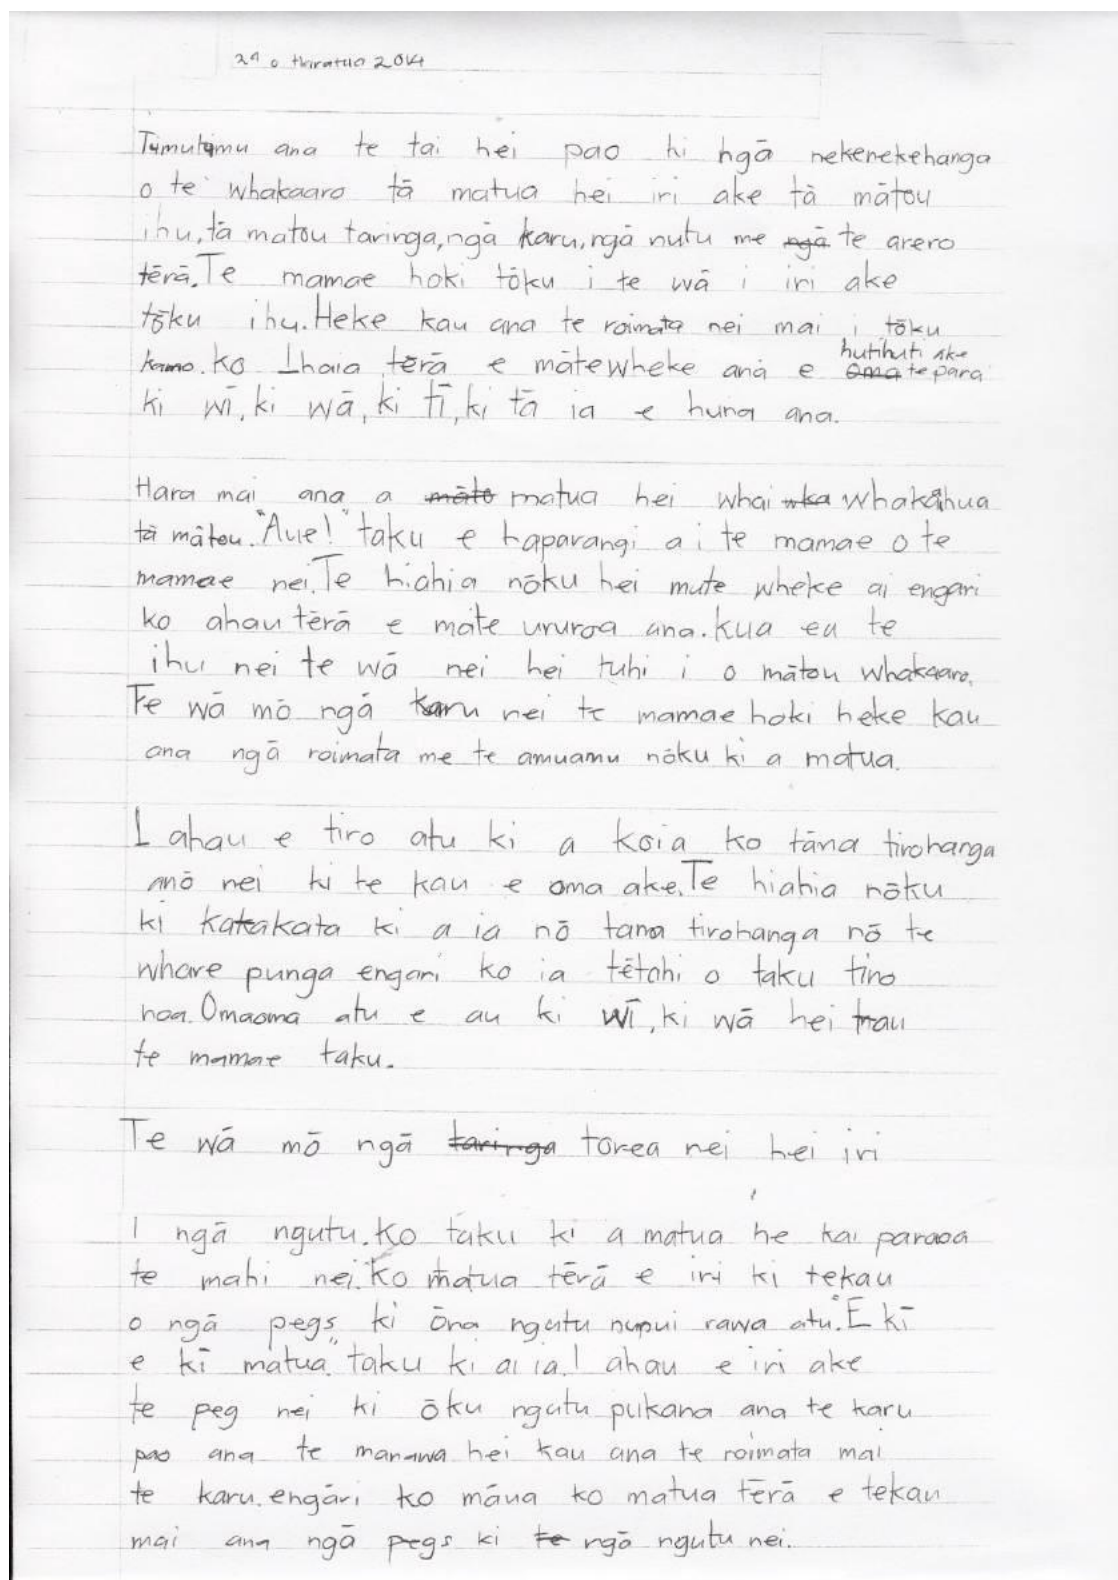 29 o Hiratua 2014
Tumutumu ana te tai hei pao hi ngā nekenekehanga
o te whakaaro tā matua hei iri ake tā mātou
ihu, tā matou taringa, ngā karu, ngā nutu me ngā te arero
tērā. Te mamae hoki tōku i te wā i iri ake
tōku ihu. Heke kau ana te roimata nei mai i tōku
kamo. Ko Ihaia tērā e mātewheke anā e oma hutihuti ake te para
ki wī, ki wā, ki tī, ki tā ia e huna ana.
Hara mai ana a māto matua hei whai wka whakāhua
tā mātou. "Aue!" taku e haparangi a i te mamae o te
mamae nei. Te hiahia nōku hei mute wheke ai engari
ko ahau tērā e mate ururoa ana. Kua ea te
ihu nei te wā nei hei tuhi i o mātou whakaaro.
Te wā mō ngā karu nei te mamae hoki heke kau
ana ngā roimata me te amuamu nōku ki a matua.
I ahau e tiro atu ki a Koia ko tāna tirohanga
anō nei ki te kau e oma ake. Te hiahia nōku
ki katakata ki a ia nō tana tirohanga nō te
whare punga engari ko ia tētahi o taku tino
hoa. Omaoma atu e au ki wī, ki wā hei mau
te mamae taku.
Te wā mō ngā taringa torea nei hei iri
I ngā ngutu. Ko taku ki a matua he kai paraoa
te mahi nei. Ko matua tērā e iri ki tekau
o ngā pegs ki ōna ngutu nunui rawa atu. "E kī
e kī matua," taku ki ai ia. I ahau e iri ake
te peg nei ki ōku ngutu pukana ana te karu
pao ana te manawa hei kau ana te roimata mai
te karu. engāri ko māua ko matua tērā e tekau
mai ana ngā pegs ki te ngā ngutu nei.